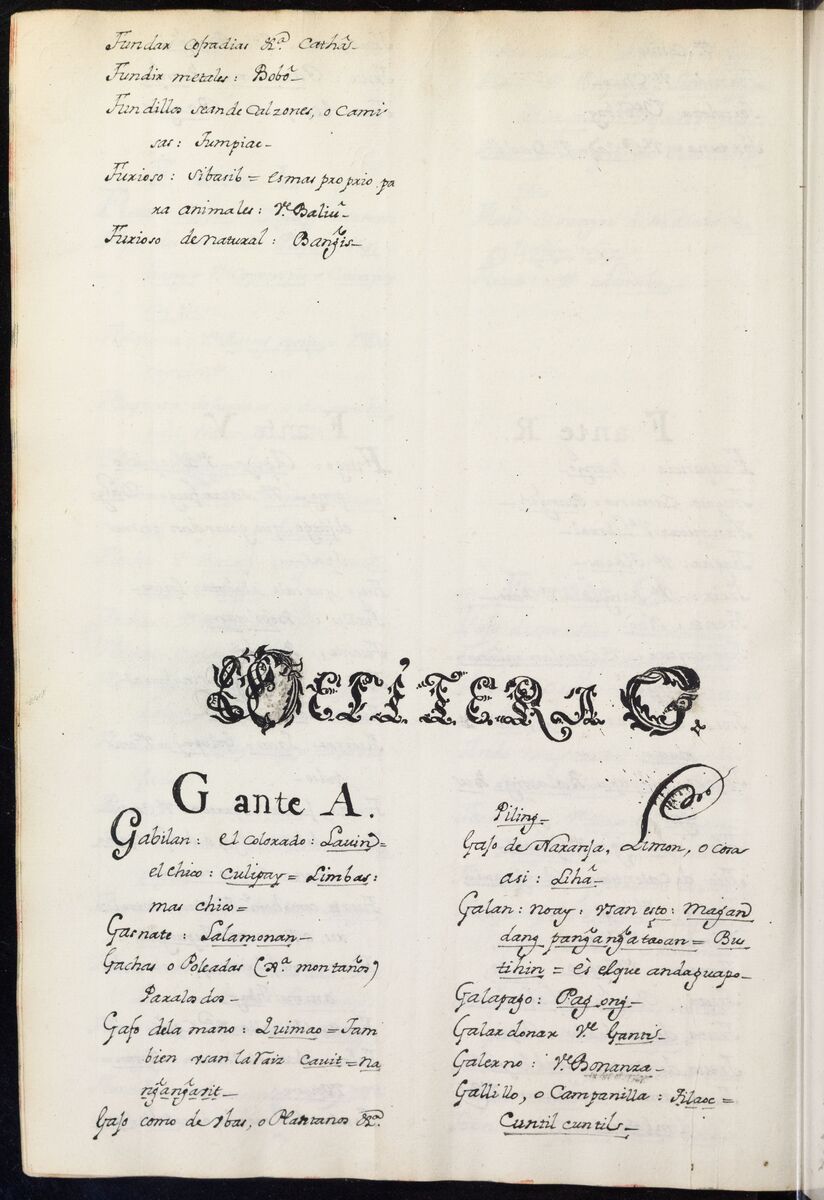 Fundar Cofradias &rª. Cathã–
Fundir metales: Bobô–
Fundillos sean de Calzones, o Cami
sas: Jumpiac–
Furioso: Sibasib = es mas proprio pa
ra animales: Vᵉ Baliũ–
Furioso de natural: Bang̃is–
G ante A.
Gabilan: el Colorado: Lauin =
el chico: Culipay = Limbas:
mas chico =
Gasnate: Salamonan–
Gachas o Poleadas (&rª montaños)
Paxalosdos–
Gajo dela mano: Quimao = Tam
bien vsan la raiz Cauit = na
ng̃ang̃arit–
Gajo como de vbas, o Plantanos &rª.
Piling–
Gajo de Naranja, Limon, o cosa
asi: Lihâ–
Galan: no ay: vsan esto: Magan
dang pang̃ang̃atãoan = Bu
tihin = ès el que anda guapo–
Galapago: Pag ong–
Galardonar Vᵉ Gantis–
Galerno: Vᵉ Bonanza–
Gallillo, o Campanilla: Tilaoc =
Cuntil cuntils–